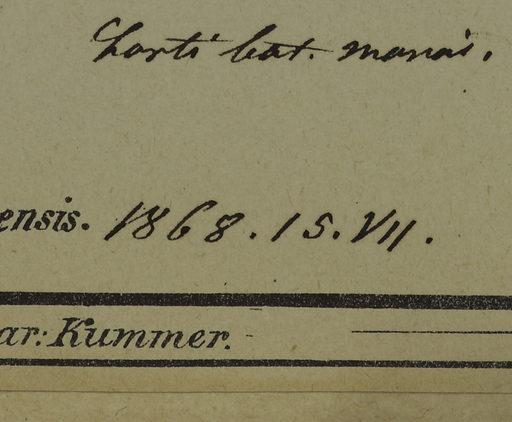 horti bot. monac.
ensis. 1868. 15. VII.
ar: Kummer.